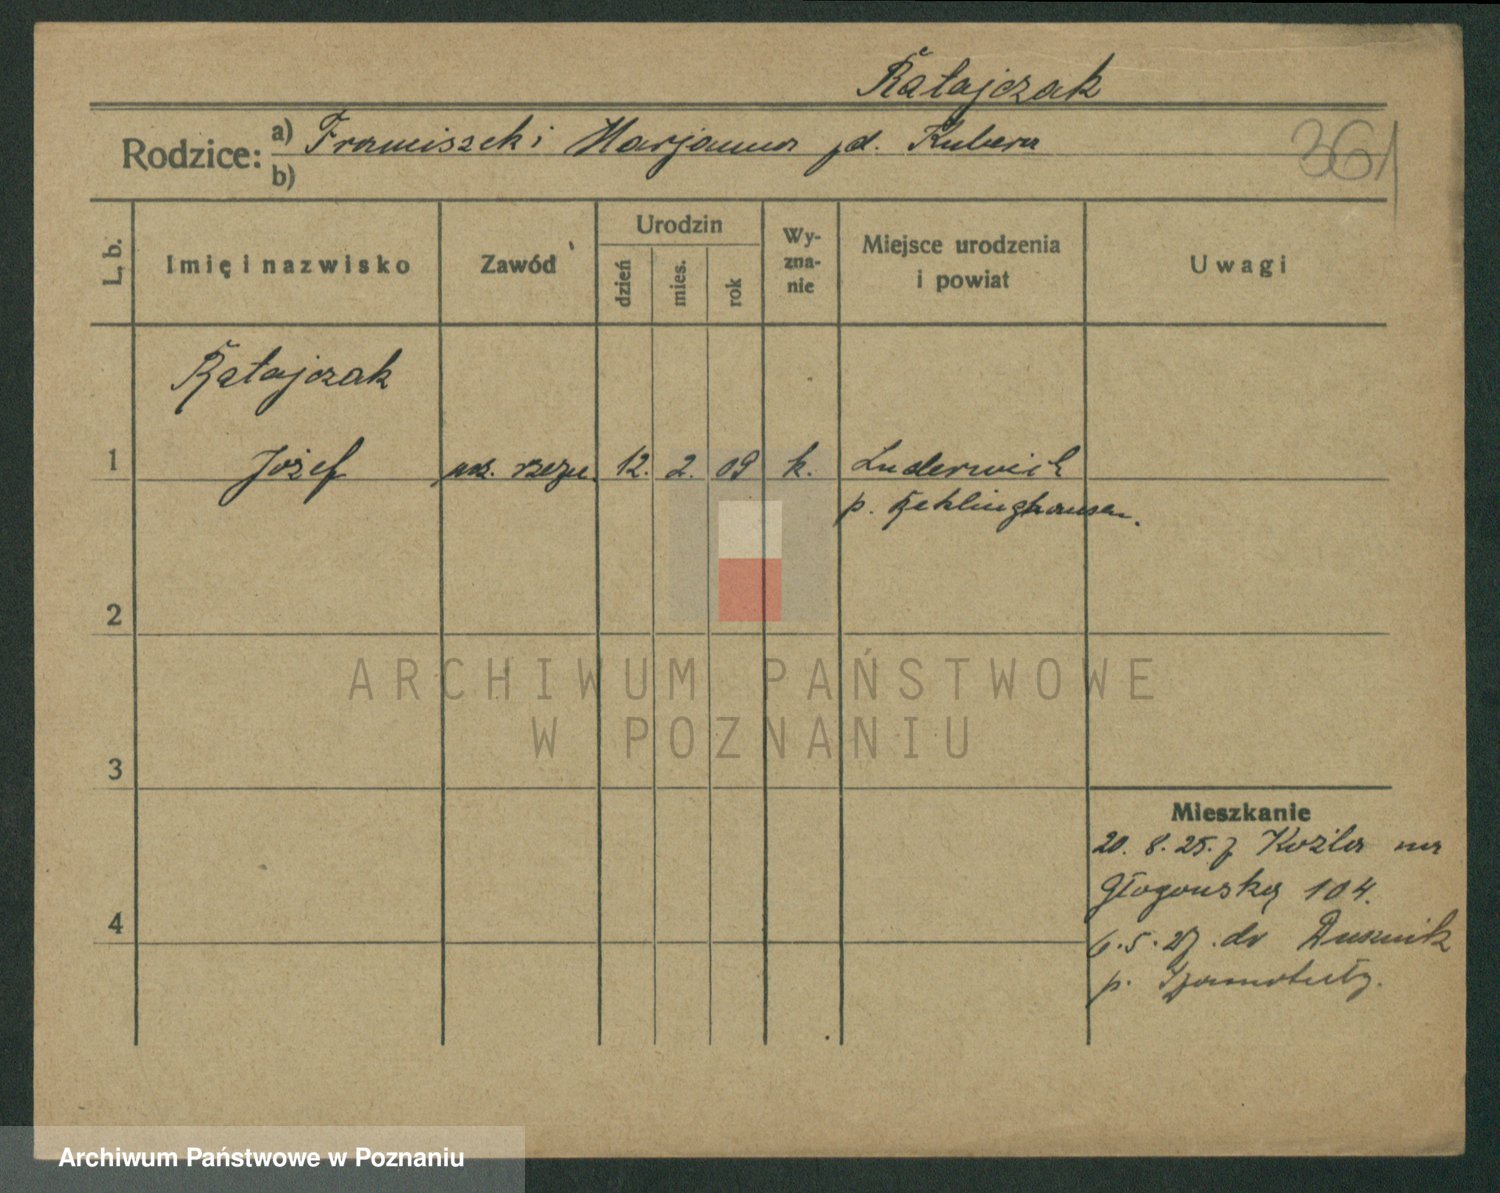 Ratajczak
Rodzice: a) Franciszek i Marjanna zd. Kubera
b)
361
L. b.
Imię i nazwisko
Zawód
Urodzin
dzień
mies.
rok
Wy-
zna-
nie
Miejsce urodzenia
i powiat
Uwagi
Ratajczak
1 Józef ucz. rzeźn. 12. 2. 09 k. Suderwich
p. Reklinghausen.
2
3
4
Mieszkanie
20. 8. 25. z Koźla na
Głogowską 104.
6. 5. 27. do Dusznik
p. Szamotuły.
ARCHIWUM PAŃSTWOWE
W POZNANIU
Archiwum Państwowe w Poznaniu